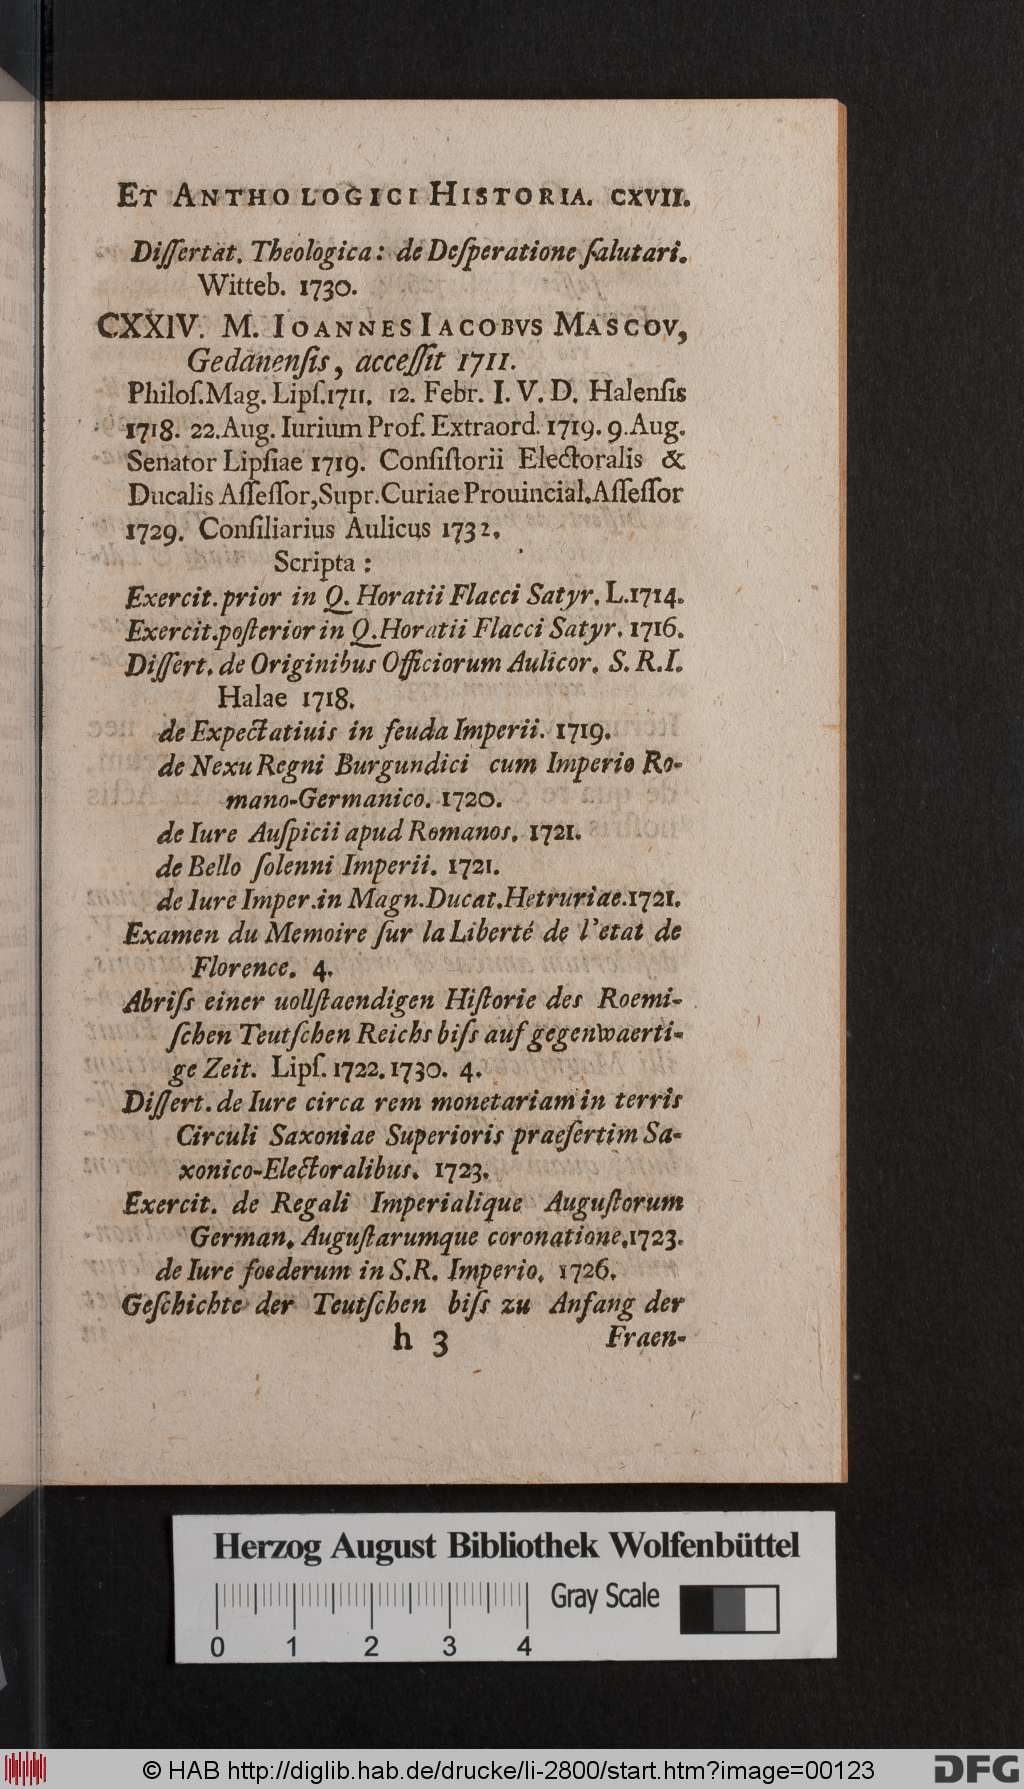 ET ANTHOLOGICI HISTORIA. CXVII.
Diſſertat. Theologica: de Deſperatione ſalutari.
Witteb. 1730.
CXXIV. M. IOANNES IACOBVS MASCOV,
Gedanenſis, acceſſit 1711.
Philoſ. Mag. Lipſ. 1711. 12. Febr. I. V. D. Halenſis
1718. 22. Aug. Iurium Prof. Extraord. 1719. 9. Aug.
Senator Lipſiae 1719. Conſiſtorii Electoralis &
Ducalis Aſſeſſor, Supr. Curiae Prouincial. Aſſeſſor
1729. Conſiliarius Aulicus 1732.
Scripta:
Exercit. prior in Q. Horatii Flacci Satyr. L. 1714.
Exercit. poſterior in Q. Horatii Flacci Satyr. 1716.
Diſſert. de Originibus Officiorum Aulicor. S. R. I.
Halae 1718.
de Expectatiuis in feuda Imperii. 1719.
de Nexu Regni Burgundici cum Imperio Ro-
mano-Germanico. 1720.
de Iure Auſpicii apud Romanos. 1721.
de Bello ſolenni Imperii. 1721.
de Iure Imper. in Magn. Ducat. Hetruriae. 1721.
Examen du Memoire ſur la Liberté de l'etat de
Florence. 4.
Abriſs einer uollſtaendigen Hiſtorie des Roemi-
ſchen Teutſchen Reichs biſs auf gegenwaerti-
ge Zeit. Lipſ. 1722. 1730. 4.
Diſſert. de Iure circa rem monetariam in terris
Circuli Saxoniae Superioris praeſertim Sa-
xonico-Electoralibus. 1723.
Exercit. de Regali Imperialique Auguſtorum
German. Auguſtarumque coronatione. 1723.
de Iure foederum in S. R. Imperio. 1726.
Geſchichte der Teutſchen biſs zu Anfang der
h 3 Fraen-
Herzog August Bibliothek Wolfenbüttel
Gray Scale
0 1 2 3 4
© HAB http://diglib.hab.de/drucke/li-2800/start.htm?image=00123
DFG